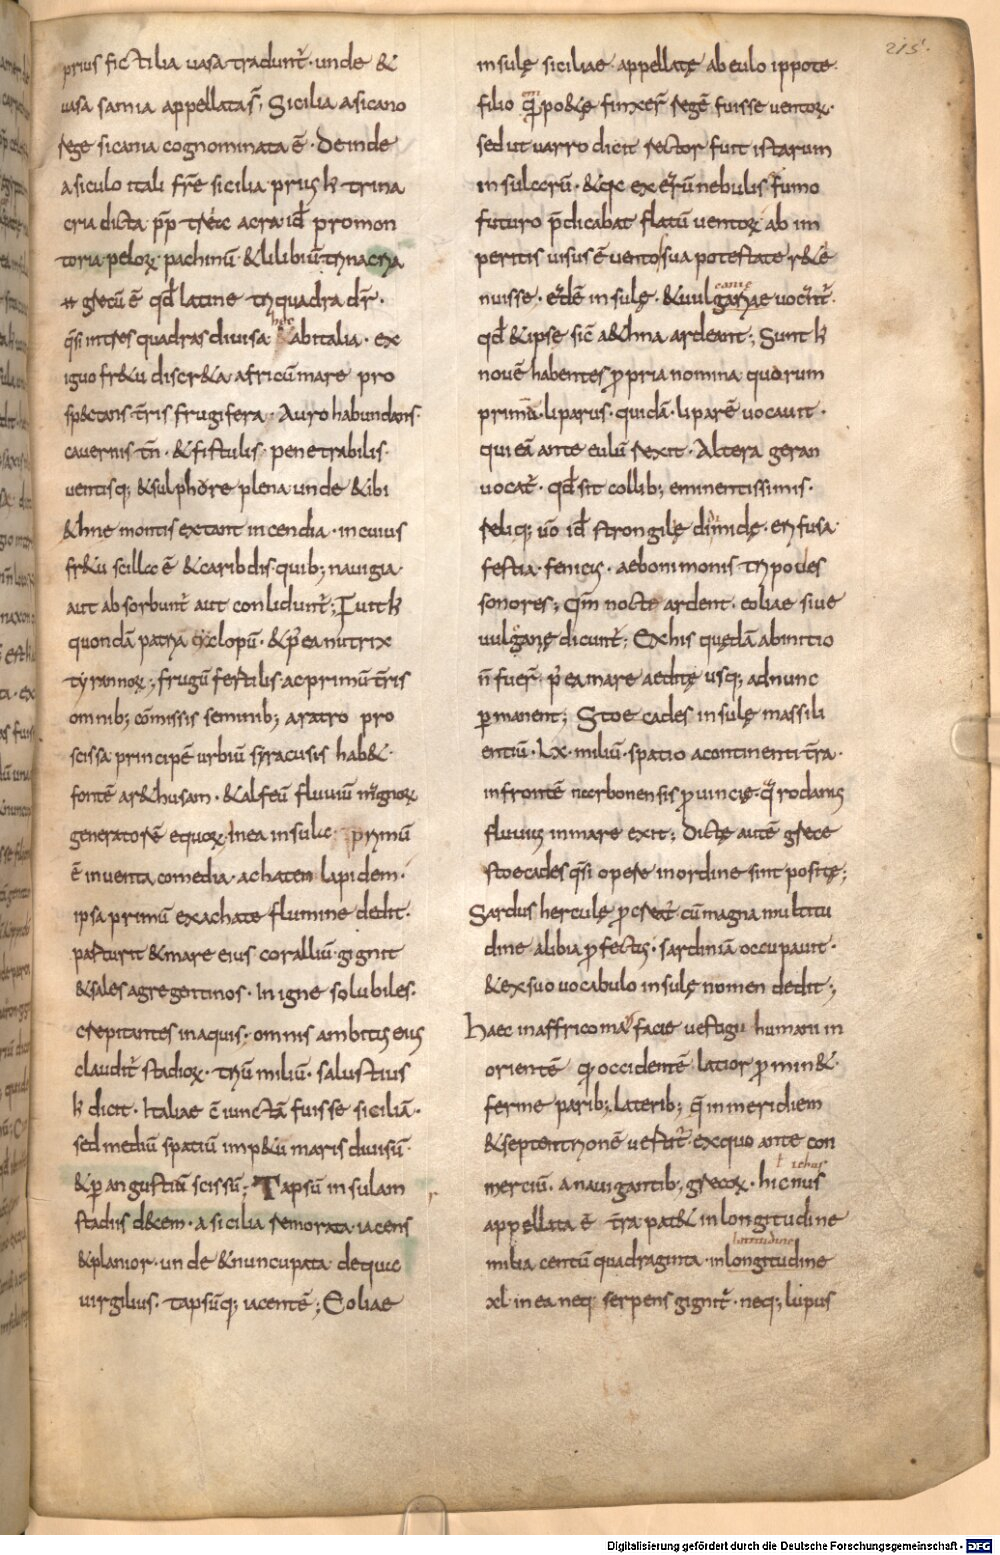 215.
prius fictilia uasa tradunt̄ · unde &
uasa samia appellata s̄; Sicilia a sicano
rege sicania cognominata ē · Deinde
a siculo itali fr̄e sicilia prius h̄ trina
cria dicta · pp̄ trea acra · id̄ promon
toria · pelorꝝ · pachinū · & lilibiū · trinacria
grecū ē qđ latine triquadra dr̄ ·
q̄si in tres quadras diuisa hec ab italia · ex
iguo fr&u discr&a africū mare pro
sp&tans · t̄ris frugifera · Auro habundans ·
cauernis tn̄ · & fistulis · penetrabilis ·
uentisq; & sulphore plena · unde & ibi
&hne montis extant incendia · in cuius
fr&u scilla ē & caribdis · quib; nauigia ·
aut absorbunt̄ aut conlidunt̄; Fuit h̄
quondā patria cyclopū · & p̄ ea nutrix
tyrannorꝝ; frugū fertilis · ac primū t̄ris
omnib; cōmissis seminib; aratro pro
scissa · principē urbiū syracusis hab& ·
fontē ar&husam · & alfeū fluuiū magnorꝝ
generatorē equorꝝ · In ea insula · primū
ē inuenta comedia · achaten lapidem ·
ipsa primū ex achate flumine dedit ·
pasturit & mare eius coralliū · gignit
& sales agregentinos · in igne solubiles ·
crepitantes in aquis · omnis ambitus eius
claudit̄ stadiorꝝ · triū miliū · salustius
h̄ dicit · Italiae c̄iunctā fuisse siciliā ·
sed mediū spatiū imp&u maris diuisū ·
& p̄ angustiā scissū; Tapsū insulam
stadiis d&em · a sicilia remorata · iacens
& planior · unde & nuncupata de qua
uirgilius · tapsūq; iacentē; Eoliae
insulę siciliae · appellatę ab eulo ippote
filio quem po&ę finxer̄ regē fuisse uentorꝝ ·
sed ut uarro dicit rector fuit istarum
insularū · & qa ex earū nebulis fumo
futuro p̄dicabat flatū uentorꝝ ab im
peritis uisus ē uento sua potestate r&e
nuisse · eędē insulę · & uulganię uocant̄ ·
qđ & ipse sic̄ a&hna ardeant; Sunt h̄
nouē habentes propria nomina quorum
primā · liparus · quidā · liparē uocauit ·
qui eā ante eulū rexit · Altera geran
uocat̄ · qđ sit collib; eminentissimis ·
reliq; uō id̄ strongilę didimidę · erifusa ·
festia · fenicus · aebonimonis tripodes
sonores; qm̄ nocte ardent · eoliae siue
uulganę dicunt̄; Ex his quędā ab initio
n̄ fuer̄ · p̄ ea mare aeditę usq; ad nunc
p̄manent; Stoecades insulę massili
entiū · lx · miliū · spatio a continenti t̄ra ·
in frontē narbonensis prouincię · qua rodanus
fluuius in mare exit; Dictę autē grece
stoecades q̄si opere in ordine sint positę;
Sardus herculę procreat̄ cū magna multitu
dine a libia profectus · sardiniā occupauit ·
& ex suo uocabulo insulę nomen dedit;
haec in affrico mari facie uestigii humani in
orientē q̄ occidentē latior promin& ·
ferme parib; laterib; q̄ in meridiem
& septentrionē uertit̄ · ex quo ante con
merciū · a nauigantib; grecorꝝ · hicnus
appellata ē t̄ra pat& in longitudine
milia centū quadraginta · in longitudine latitudine
xl · in ea neq; serpens gignit̄ · neq; lupus
Digitalisierung gefördert durch die Deutsche Forschungsgemeinschaft - DFG